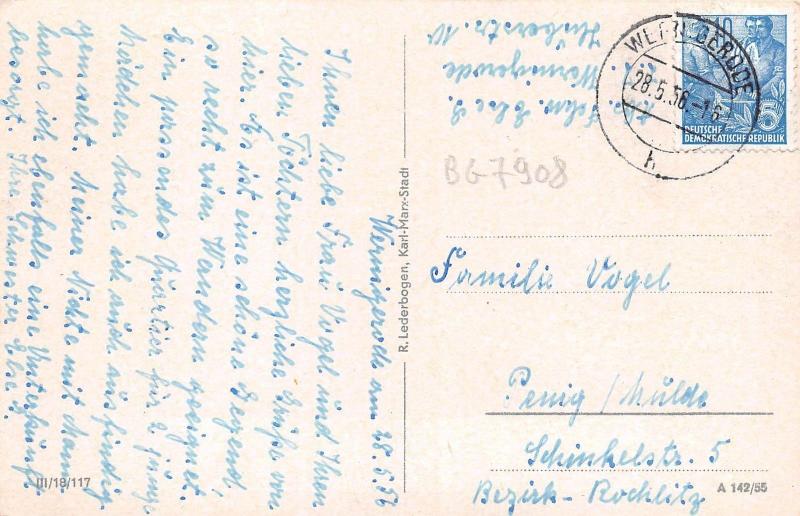 Wernigerode am 28.5.56
Ihnen liebe Frau Vogel und Ihren
lieben Töchtern herzliche Grüße von
hier. Es ist eine schöne Gegend,
so recht zum Wandern geeignet.
Ein passendes Quartier für 2 junge
Mädchen habe ich auch ausfindig
gemacht. Meiner Nichte mit Mann
habe ich ebenfalls eine Unterkunft
besorgt. Ihre Schwester Else.
III/18/117
R. Lederbogen, Karl-Marx-Stadt
Wernigerode
WERNIGERODE
28.5.56-16
h
10
DEUTSCHE
DEMOKRATISCHE REPUBLIK
BG7908
Familie Vogel
Penig/Mulde
Schinkelstr. 5
Bezirk-Rochlitz
A 142/55